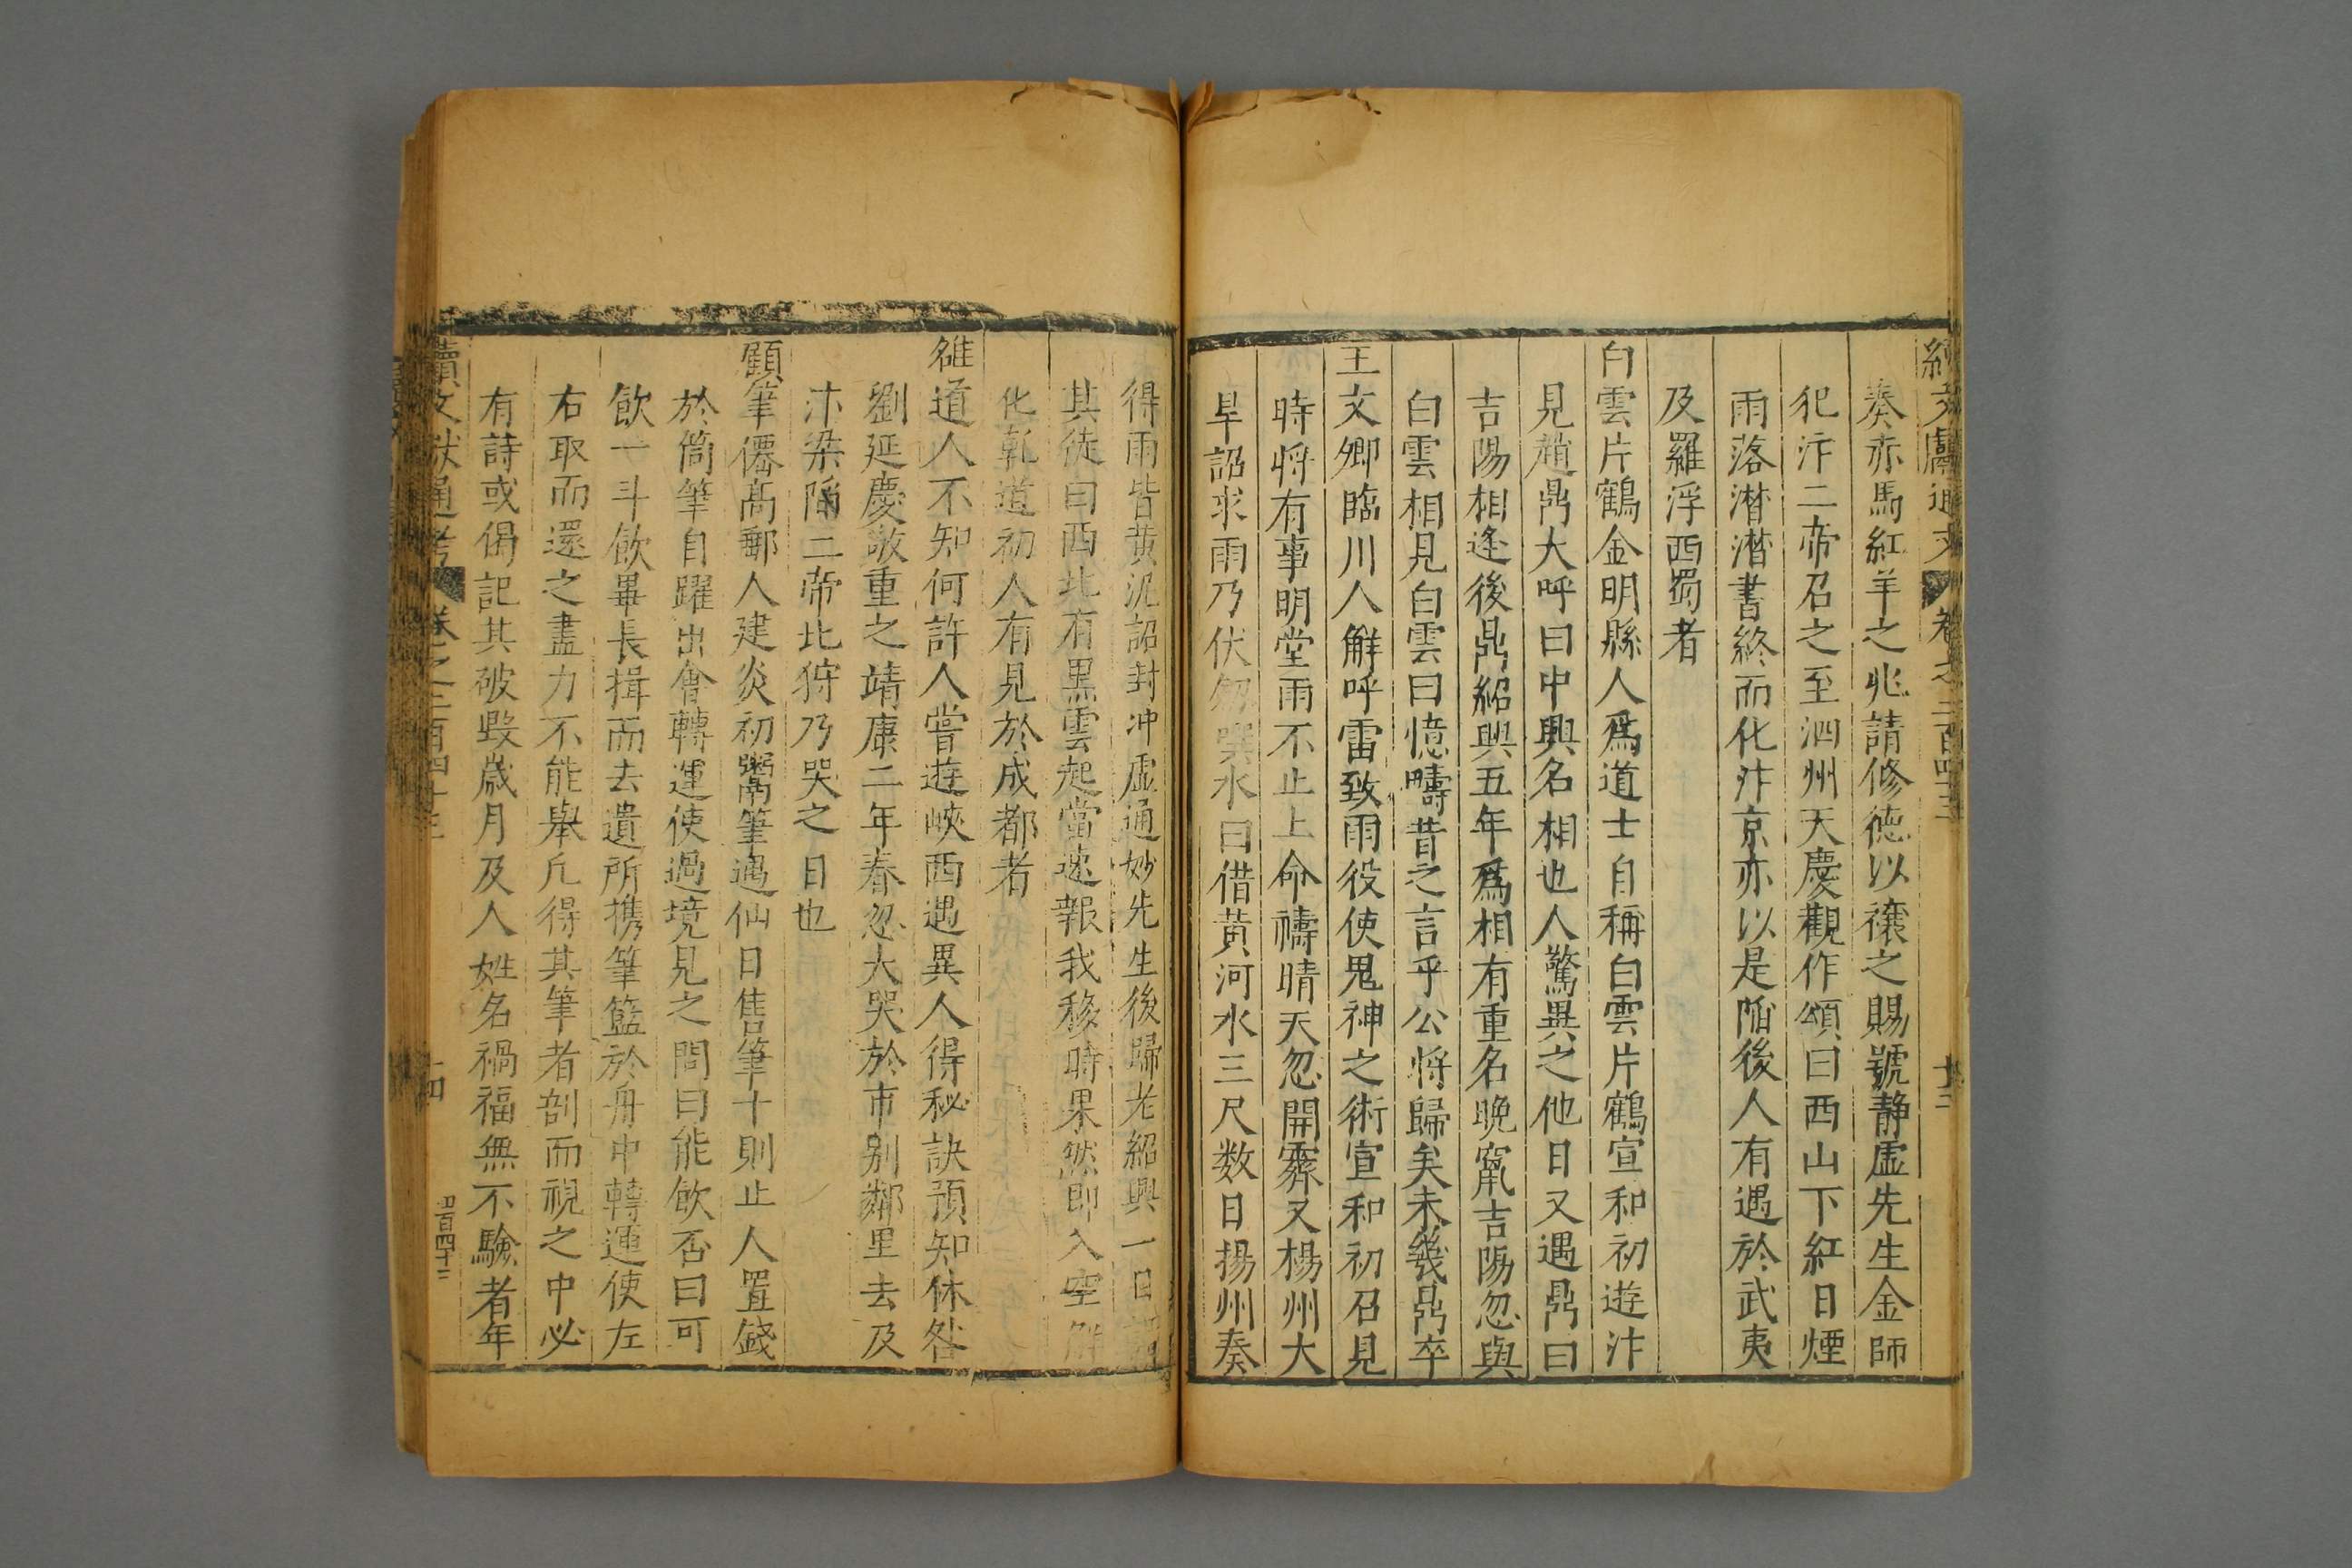 奏赤馬紅羊之兆請修德以禳之賜號靜虛先生金師
犯汴二帝召之至泗州天慶觀作頌曰西山下紅日煙
雨落潸潸書終而化汴京亦以是陷後人有遇於武夷
及羅浮西蜀者
白雲片鶴金明縣人爲道士自稱白雲片鶴宣和初遊汴
見趙鼎大呼曰中興名相也人驚異之他日又遇鼎曰
吉陽相逢後鼎紹興五年爲相有重名晚竄吉陽忽與
白雲相見白雲曰憶疇昔之言乎公將歸矣未幾鼎卒
王文卿臨川人解呼雷致雨役使鬼神之術宣和初召見
時將有事明堂雨不止上命禱晴天忽開霽又楊州大
旱詔求雨乃伏劍噀水曰借黃河水三尺数日揚州奏
得雨皆黃泥詔封冲虛通妙先生後歸老紹興一日
其徒曰西北有黑雲起當速報我移時果然即入空解
化乾道初人有見於成都者
雒道人不知何許人嘗遊峽西遇異人得秘訣預知休咎
劉延慶敬重之靖康二年春忽大哭於市别鄰里去及
汴梁陷二帝北狩乃哭之日也
顧筆僊高郵人建炎初鬻筆遇仙日售筆十則止人置錢
於筒筆自躍出會轉運使過境見之問曰能飲否曰可
飲一斗飲畢長揖而去遺所携筆籃於舟中轉運使左
右取而還之盡力不能舉凡得其筆者剖而視之中必
有詩或偈記其破毀歲月及人姓名禍福無不驗者年
續文獻通考 卷之二百四十三 十四
四百四十二